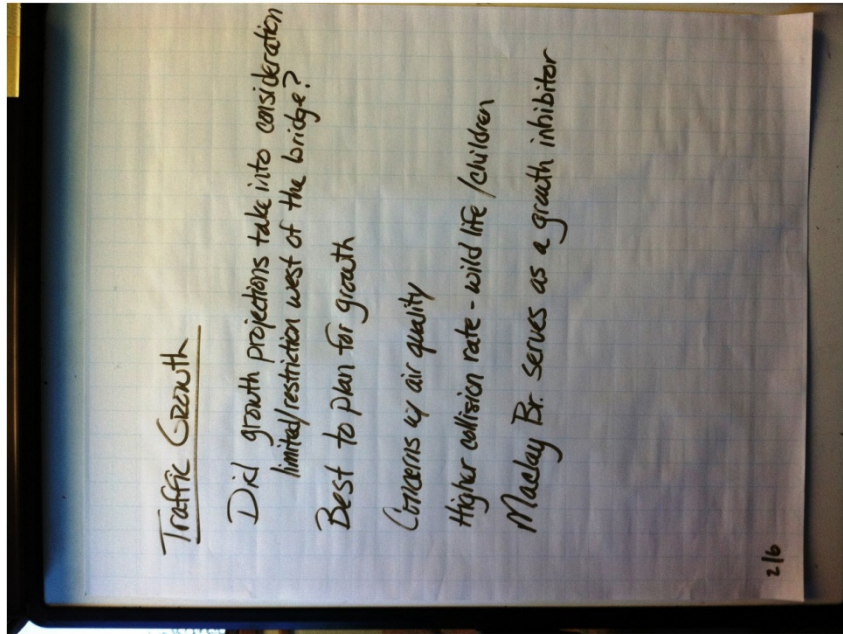 Traffic Growth
Did growth projections take into consideration
limited/restriction west of the bridge?
Best to plan for growth
Concerns w/ air quality
Higher collision rate - wild life /children
Maclay Br. serves as a growth inhibitor
2/6